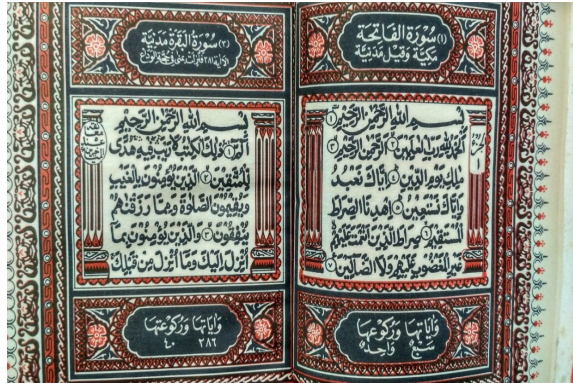 (١) سُورَةُ الْفَاتِحَةِ
مَكِّيَّة وَقِيْلَ مَدَنِيَّة
بِسْمِ اللهِ الرَّحْمٰنِ الرَّحِيْمِ ١
اَلْحَمْدُ لِلّٰهِ رَبِّ الْعٰلَمِيْنَ ٢ اَلرَّحْمٰنِ الرَّحِيْمِ ٣
مٰلِكِ يَوْمِ الدِّيْنِ ٤ اِيَّاكَ نَعْبُدُ
وَاِيَّاكَ نَسْتَعِيْنُ ٥ اِهْدِنَا الصِّرَاطَ
الْمُسْتَقِيْمَ ٦ صِرَاطَ الَّذِيْنَ اَنْعَمْتَ عَلَيْهِمْ
غَيْرِ الْمَغْضُوْبِ عَلَيْهِمْ وَلَا الضَّآلِّيْنَ ٧
وَاٰيَاتُهَا وَرُكُوْعُهَا
سَبْعٌ وَاحِدٌ
الجزء
١
(٢) سُورَةُ الْبَقَرَةِ مَدَنِيَّة
بِسْمِ اللهِ الرَّحْمٰنِ الرَّحِيْمِ
الٓمّٓ ١ ذٰلِكَ الْكِتٰبُ لَا رَيْبَ فِيْهِ هُدًى
لِّلْمُتَّقِيْنَ ٢ الَّذِيْنَ يُؤْمِنُوْنَ بِالْغَيْبِ
وَيُقِيْمُوْنَ الصَّلٰوةَ وَمِمَّا رَزَقْنٰهُمْ
يُنْفِقُوْنَ ٣ وَالَّذِيْنَ يُؤْمِنُوْنَ بِمَا
اُنْزِلَ اِلَيْكَ وَمَا اُنْزِلَ مِنْ قَبْلِكَ
وَاٰيَاتُهَا وَرُكُوْعُهَا
٢٨٦ ٤٠